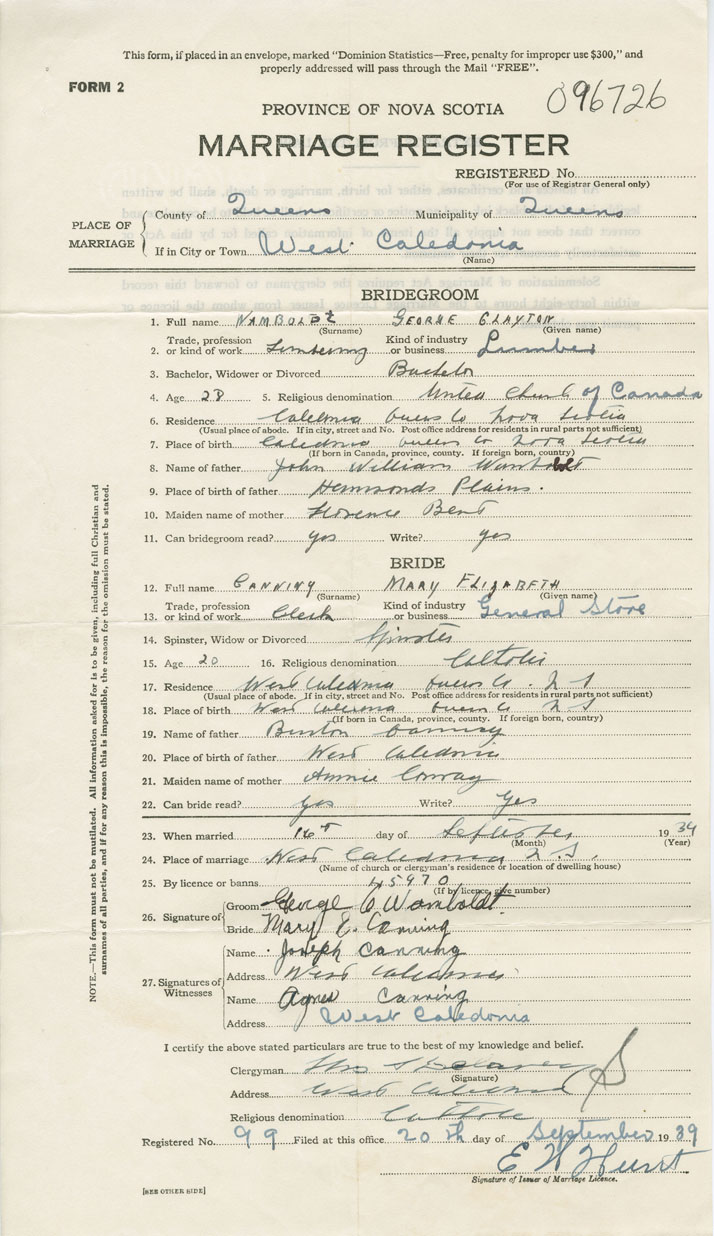 This form, if placed in an envelope, marked "Dominion Statistics—Free, penalty for improper use $300," and
properly addressed will pass through the Mail "FREE".
FORM 2
096726
PROVINCE OF NOVA SCOTIA
MARRIAGE REGISTER
REGISTERED No.
(For use of Registrar General only)
PLACE OF MARRIAGE
County of Queens Municipality of Queens
If in City or Town West Caledonia
(Name)
BRIDEGROOM
1. Full name WAMBOLDT GEORGE CLAYTON
(Surname) (Given name)
2. Trade, profession or kind of work Lumbering Kind of industry or business Lumber
3. Bachelor, Widower or Divorced Bachelor
4. Age 28 5. Religious denomination United Church of Canada
6. Residence Caledonia Queens Co Nova Scotia
(Usual place of abode. If in city, street and No. Post office address for residents in rural parts not sufficient)
7. Place of birth Caledonia Queens Co Nova Scotia
(If born in Canada, province, county. If foreign born, country)
8. Name of father John William Wamboldt
9. Place of birth of father Hammonds Plains.
10. Maiden name of mother Florence Bent
11. Can bridegroom read? yes Write? yes
BRIDE
12. Full name CANNING MARY ELIZABETH
(Surname) (Given name)
13. Trade, profession or kind of work Clerk Kind of industry or business General Store
14. Spinster, Widow or Divorced Spinster
15. Age 20 16. Religious denomination Catholic
17. Residence West Caledonia Queens Co. N S
(Usual place of abode. If in city, street and No. Post office address for residents in rural parts not sufficient)
18. Place of birth West Caledonia Queens Co N S
(If born in Canada, province, county. If foreign born, country)
19. Name of father Burton Canning
20. Place of birth of father West Caledonia
21. Maiden name of mother Annie Conway
22. Can bride read? yes Write? Yes
23. When married 16 day of September 1939
(Month) (Year)
24. Place of marriage West Caledonia N.S.
(Name of church or clergyman's residence or location of dwelling house)
25. By licence or banns 45970
(If by licence, give number)
26. Signature of
Groom George C Wamboldt
Bride Mary E. Canning
27. Signatures of Witnesses
Name Joseph Canning
Address West Caledonia
Name Agnes Canning
Address West Caledonia
I certify the above stated particulars are true to the best of my knowledge and belief.
Clergyman
(Signature)
Address West Caledonia
Religious denomination Catholic
Registered No. 99 Filed at this office 20th day of September 1939
E W Hurst
Signature of Issuer of Marriage Licence.
[SEE OTHER SIDE]
NOTE.—This form must not be mutilated. All information asked for is to be given, including full Christian and
surnames of all parties, and if for any reason this is impossible, the reason for the omission must be stated.